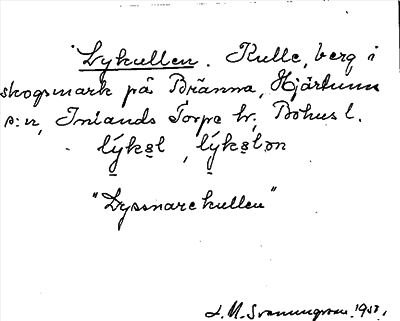 Lykullen. Kulle, berg i
skogsmark på Bränna, Hjärtums
s:n, Inlands Torpe hr, Bohusl.
lýkəl, lýkələn
"Lyssnarekullen"